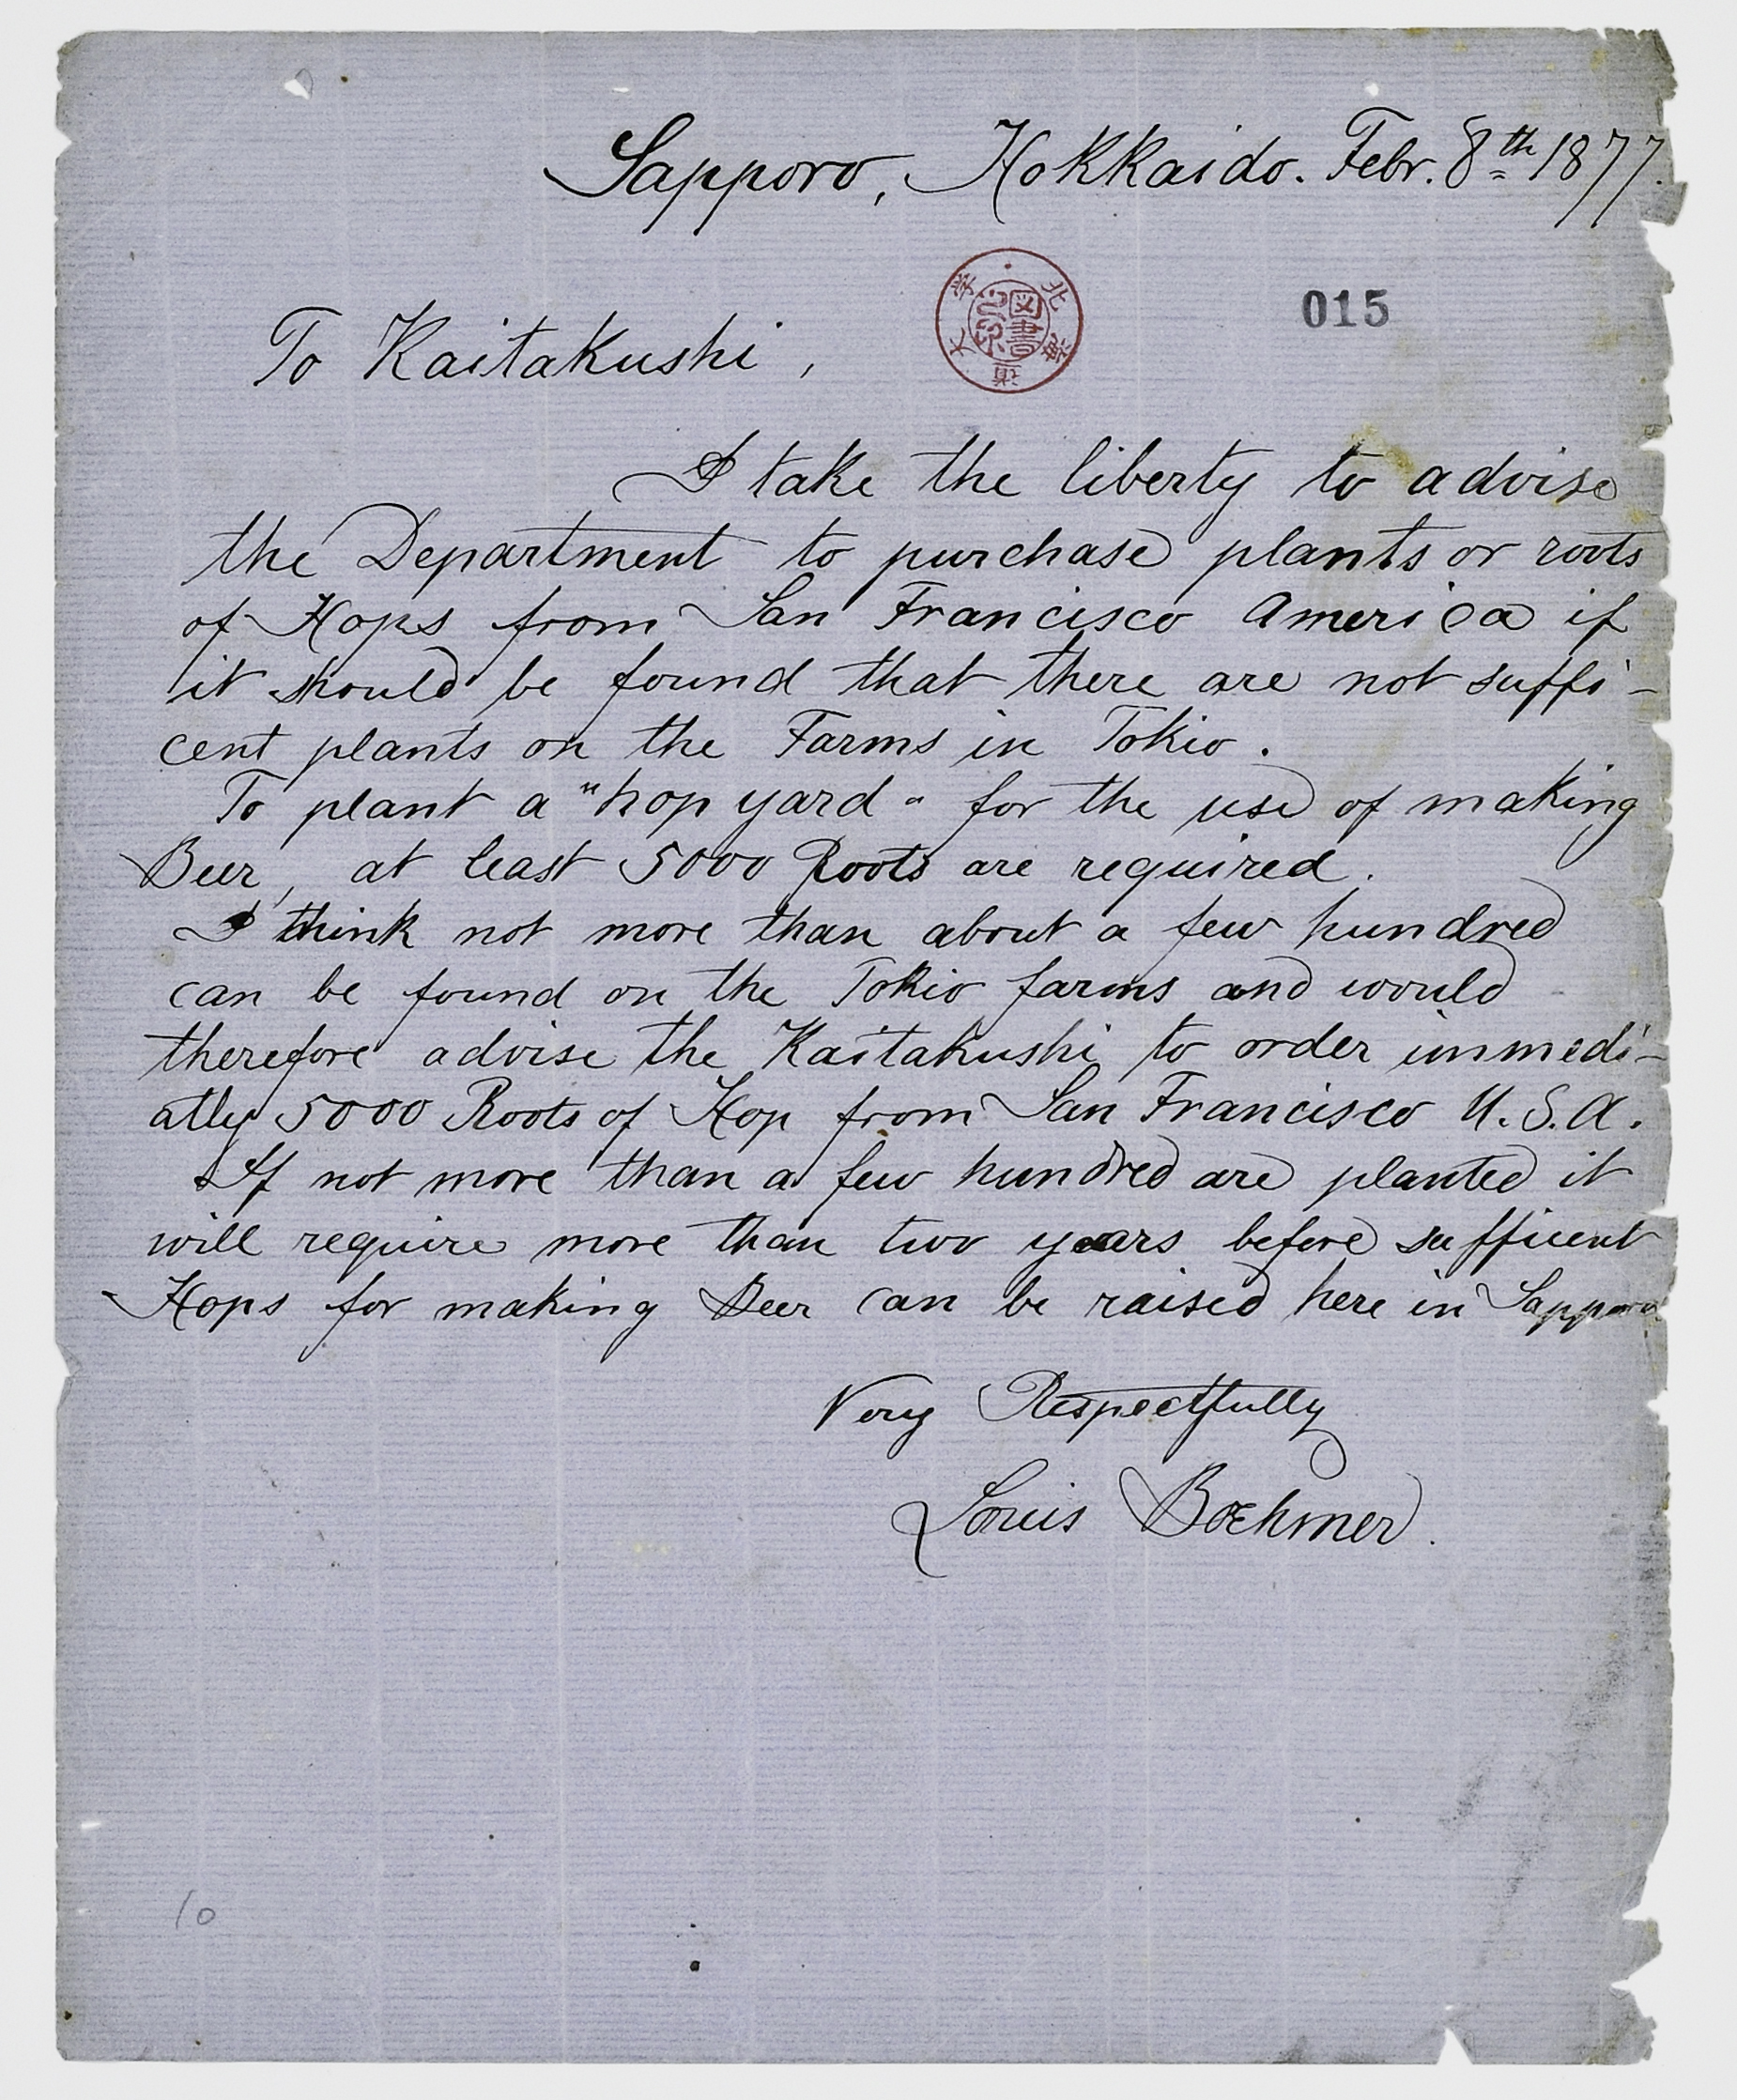 Sapporo, Hokkaido. Febr. 8th 1877.
北海道大学
図書
015
To Kaitakushi,
I take the liberty to advise
the Department to purchase plants or roots
of Hops from San Francisco America if
it should be found that there are not suffi-
cent plants on the Farms in Tokio.
To plant a "hop yard" for the use of making
Beer, at least 5000 Roots are required.
I think not more than about a few hundred
can be found on the Tokio farms and would
therefore advise the Kaitakushi to order immedi-
atly 5000 Roots of Hop from San Francisco U.S.A.
If not more than a few hundred are planted it
will require more than two years before sufficent
Hops for making Beer can be raised here in Sapporo.
Very Respectfully
Louis Boehmer.
10